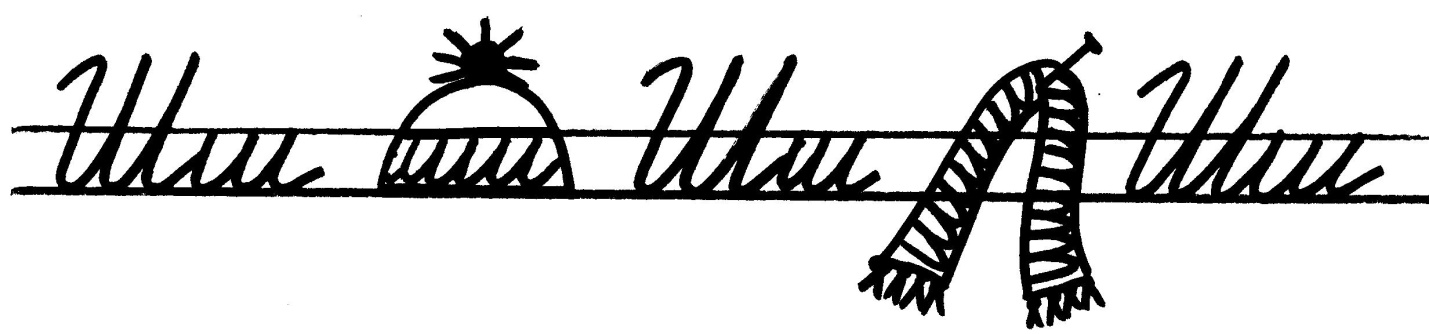 Шш Шш Шш